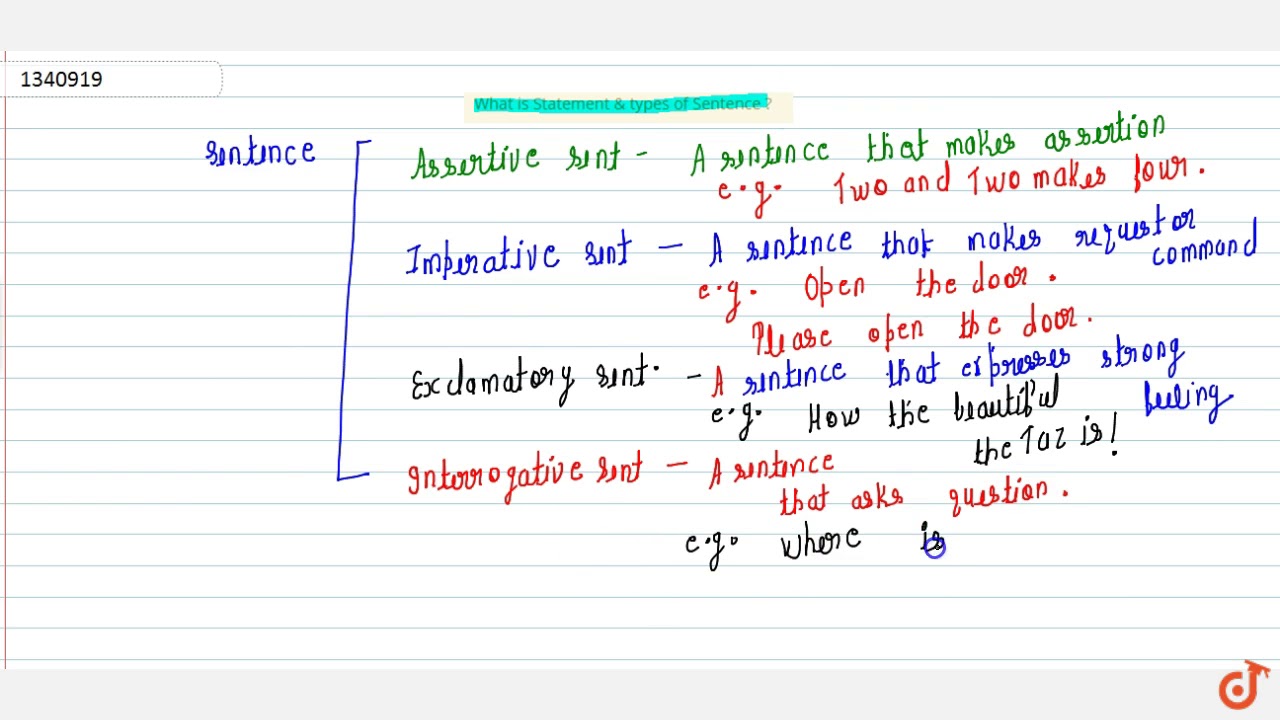 1340919
What is Statement & types of Sentence ?
sentence
Assertive sent - A sentence that makes assertion
e.g. Two and Two makes four.
Imperative sent - A sentence that makes request or
command
e.g. Open the door.
Please open the door.
Exclamatory sent. - A sentence that expresses strong
feeling
e.g. How the beautiful
the Taz is!
Interrogative sent - A sentence
that asks question.
e.g. where is